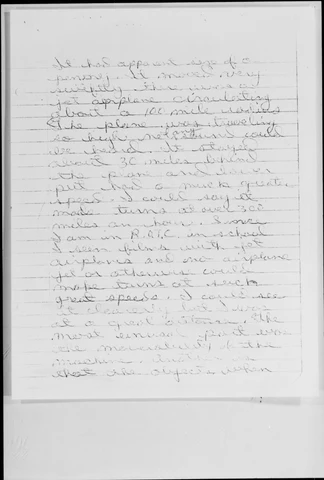 It had apparent size of a
penny. It moved very
swiftly. There was a
jet airplane circulating
about a 100 mile radius
The plane was traveling
so high no sound could
be heard. It stayed
about 30 miles behind
the plane and lower
but had a much great.
speed. I could say it
made turns at over 300
miles an hour. I
I am in R.O.T.C. in school
I seen films with jet
airplanes and no airplane
jet or otherwise could
make turns at such
great speeds. I could see
it clearly but I was
at a great distance. The
most unusual part was
the maneuverability of the
machine.
that the objects when